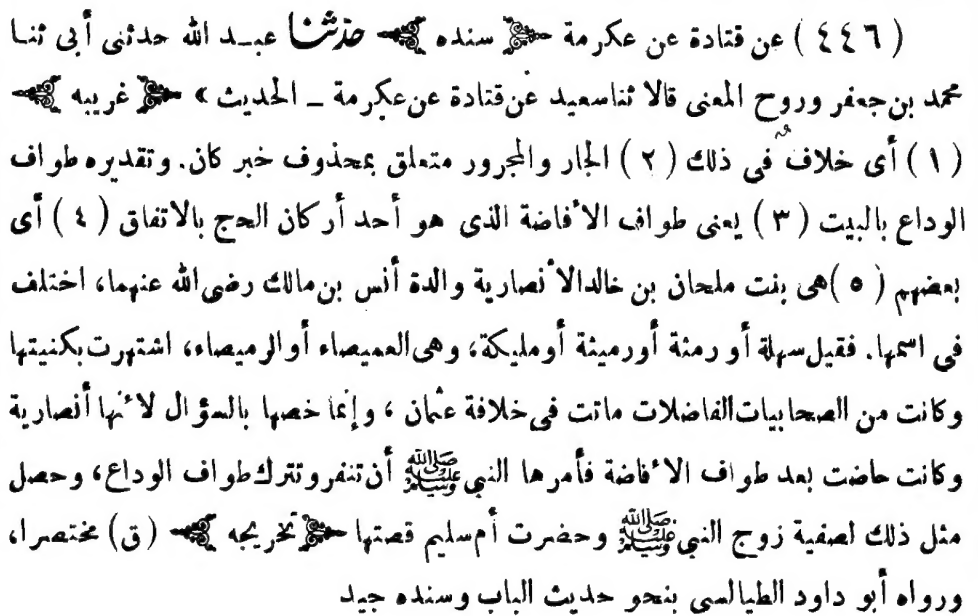 ( ٤٤٦ ) عن قتادة عن عكرمة ﴿ سنده ﴾ حدثنا عبد الله حدثنى أبى ثنا
محمد بن جعفر وروح المعنى قالا ثنا سعيد عن قتادة عن عكرمة ـ الحديث » ﴿ غريبه ﴾
( ١ ) أى خلاف فى ذلك ( ٢ ) الجار والمجرور متعلق بمحذوف خبر كان. وتقديره طواف
الوداع بالبيت ( ٣ ) يعنى طواف الأفاضة الذى هو أحد أركان الحج بالاتفاق ( ٤ ) أى
بعضهم ( ٥ ) هى بنت ملحان بن خالد الأنصارية والدة أنس بن مالك رضى الله عنهما، اختلف
فى اسمها. فقيل سهلة أو رمئة أو رميئة أو مليكة، وهى العميصاء أو الرميصاء، اشتهرت بكنيتها
وكانت من الصحابيات الفاضلات ماتت فى خلافة عثمان ، وإنما خصها بالسؤال لأنها أنصارية
وكانت حاضت بعد طواف الأفاضة فأمرها النبى ﷺ أن تنفر وتترك طواف الوداع، وحصل
مثل ذلك لصفية زوج النبى ﷺ وحضرت أم سليم قصتها ﴿ تخريجه ﴾ (ق) مختصرا،
ورواه أبو داود الطيالسى بنحو حديث الباب وسنده جيد